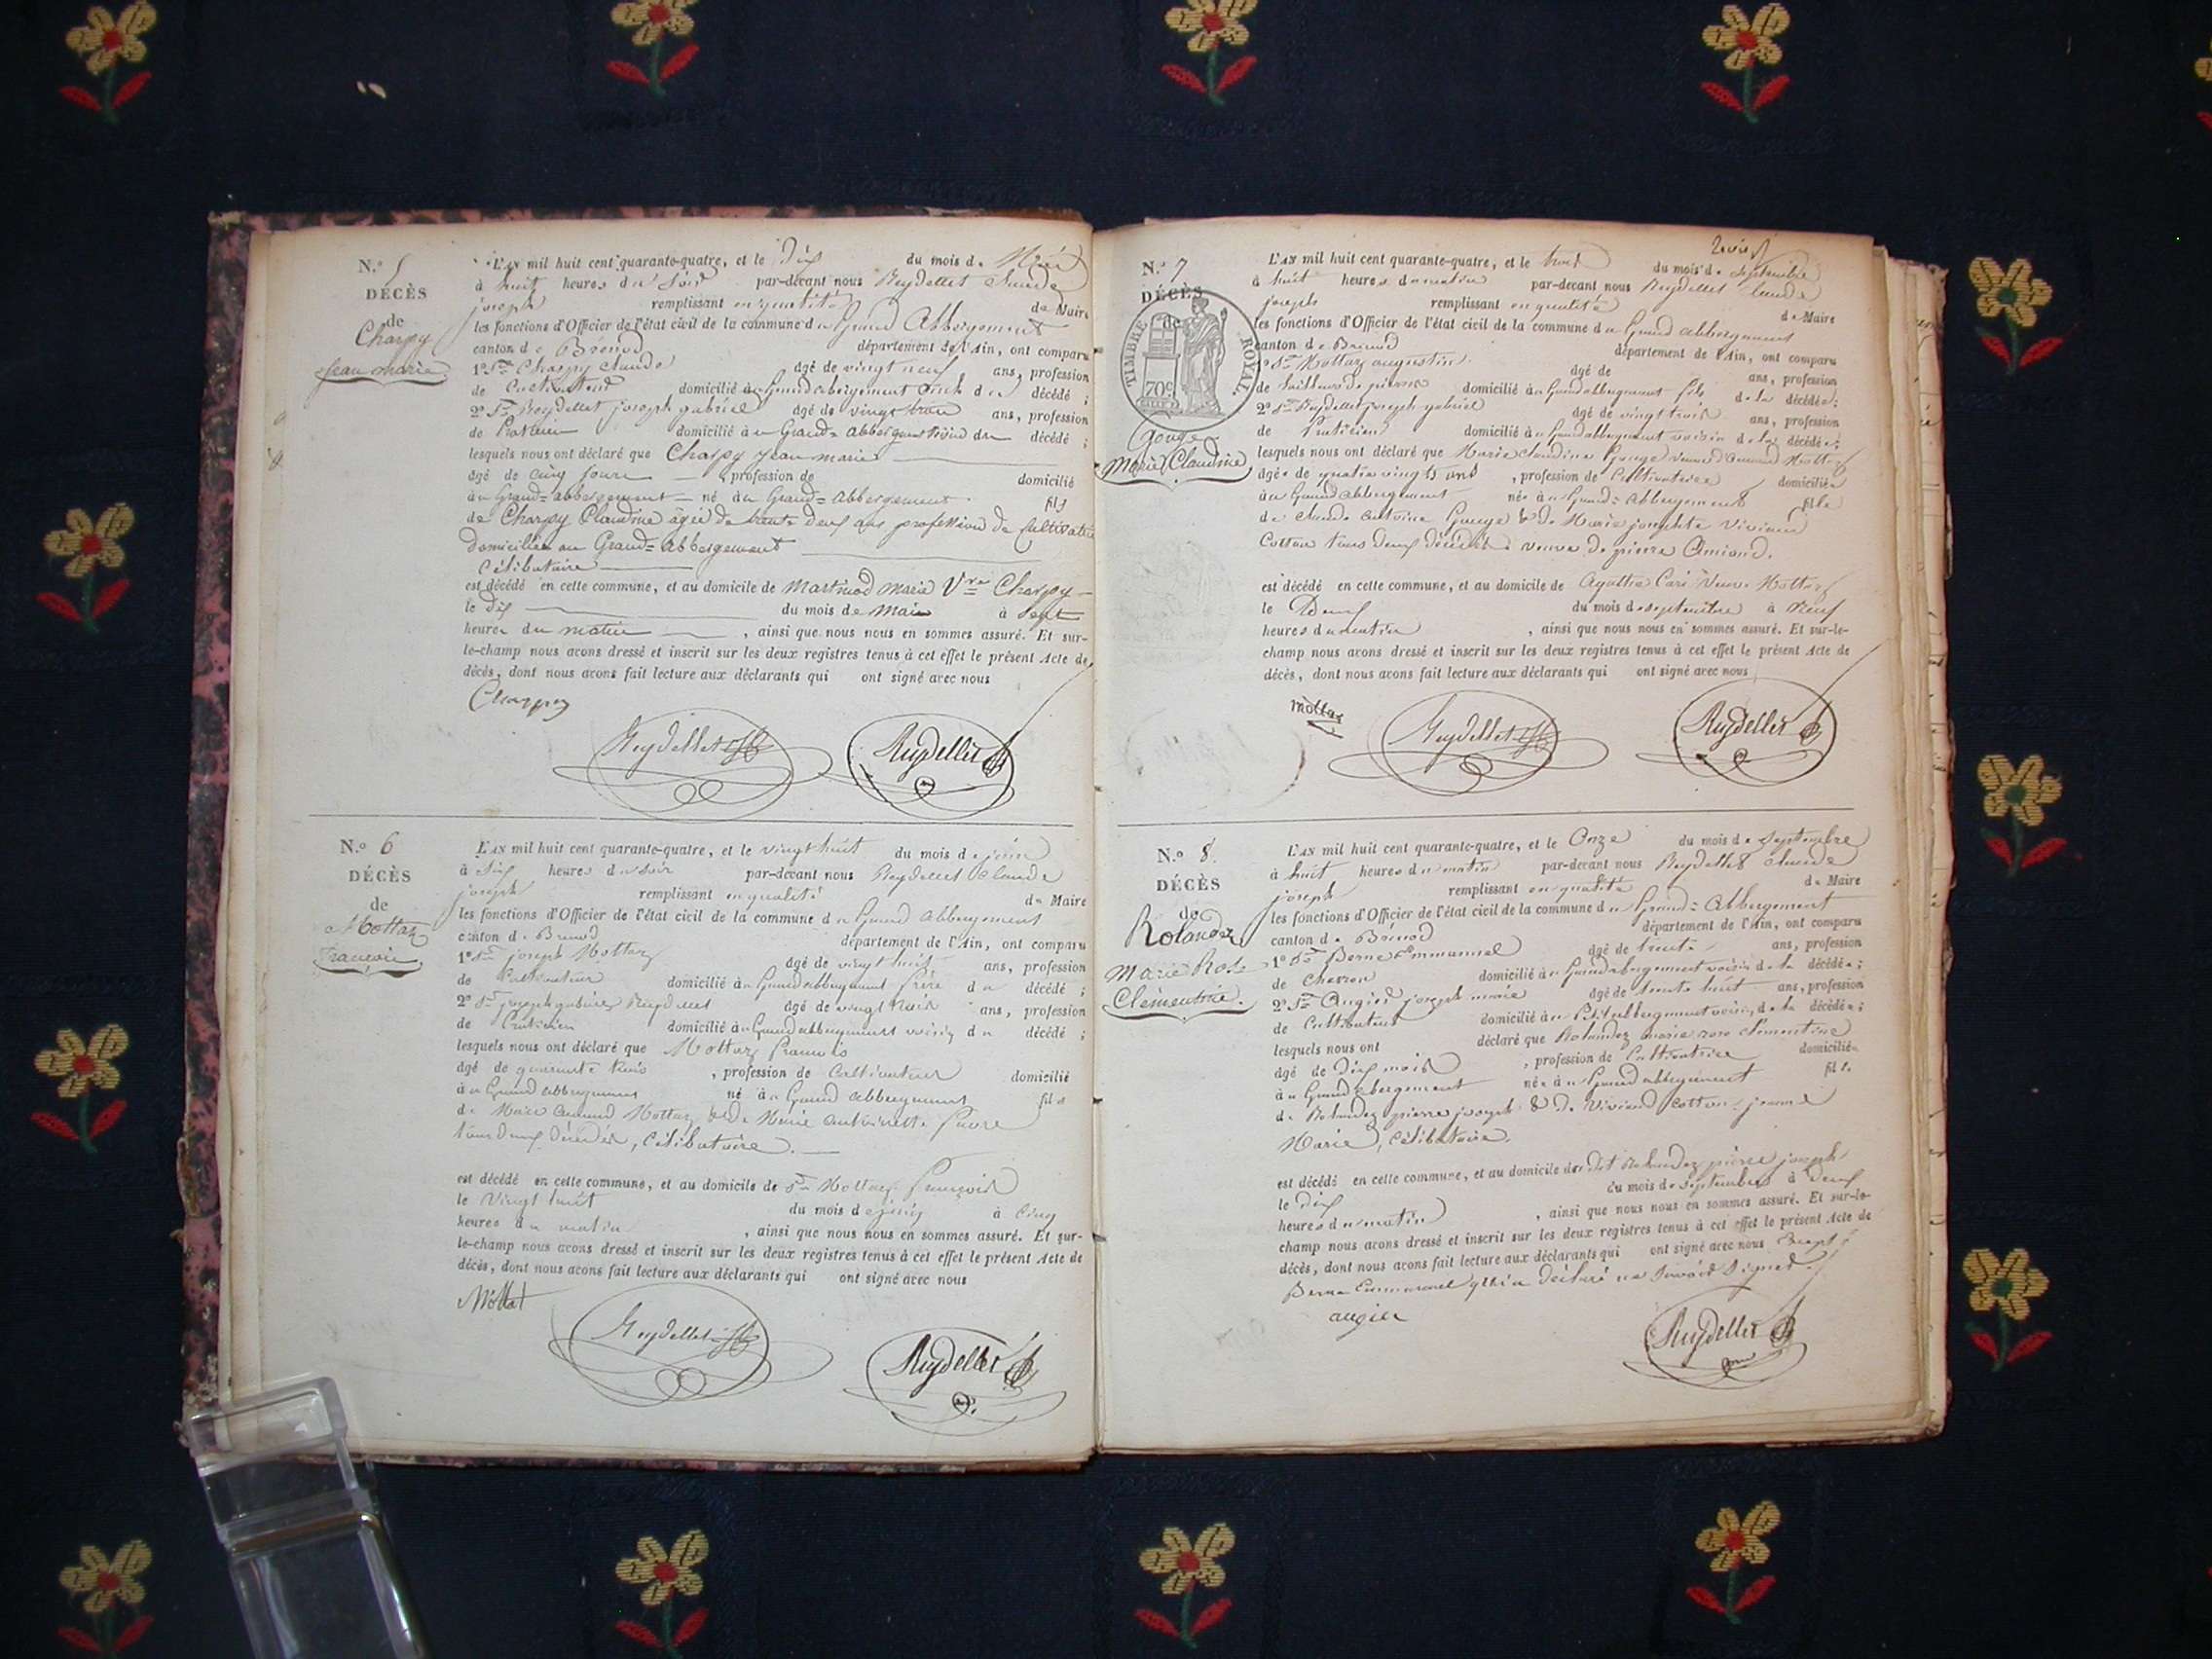 N.º 5
DÉCÈS
de
Charpy
Jean marie
L'AN mil huit cent quarante-quatre, et le Dix du mois de Mai
à huit heures du Soir par-devant nous Reydellet Claude
joseph remplissant en qualité de Maire
les fonctions d'Officier de l'état civil de la commune du Grand Abbergement
canton de Brénod département de l'Ain, ont comparu
1º Sr Charpy Claude âgé de vingt neuf ans, profession
de Cultivateur domicilié au Grand abergement oncle du décédé ;
2º Sr Reydellet joseph gabriel âgé de vingt trois ans, profession
de Praticien domicilié au Grand=abbergement voisin du décédé ;
lesquels nous ont déclaré que Charpy Jean marie
âgé de cinq jours , profession de domicilié
au Grand=abbergement né au Grand=abbergement fils
de Charpy Claudine âgée de trente deux ans profession de Cultivatrice
Domiciliée au Grand=abbergement
Célibataire
est décédé en cette commune, et au domicile de Martinod marie Vve Charpy
le dix du mois de Mai à Sept
heures du matin , ainsi que nous nous en sommes assuré. Et sur-
le-champ nous avons dressé et inscrit sur les deux registres tenus à cet effet le présent Acte de
décès, dont nous avons fait lecture aux déclarants qui ont signé avec nous
Charpy
Reydellet Reydellet
N.º 6
DÉCÈS
de
Mottaz
François
L'AN mil huit cent quarante-quatre, et le vingt huit du mois de juin
à Six heures du Soir par-devant nous Reydellet Claude
joseph remplissant en qualité de Maire
les fonctions d'Officier de l'état civil de la commune du Grand Abbergement
canton de Brenod département de l'Ain, ont comparu
1º Sr joseph Mottaz âgé de vingt huit ans, profession
de Cultivateur domicilié au Grand abbergement frère du décédé ;
2º Sr joseph gabriel Reydellet âgé de vingt trois ans, profession
de Praticien domicilié au Grand abbergement voisin du décédé ;
lesquels nous ont déclaré que Mottaz francois
âgé de quarante trois , profession de Cultivateur domicilié
au Grand abbergement né au Grand abbergement fils
de Marie Mottaz & de Marie antoinette Favre
tous deux décédés, Célibataire.
est décédé en cette commune, et au domicile de Sr Mottaz françois
le Vingt huit du mois de juin à Cinq
heures du matin , ainsi que nous nous en sommes assuré. Et sur-
le-champ nous avons dressé et inscrit sur les deux registres tenus à cet effet le présent Acte de
décès, dont nous avons fait lecture aux déclarants qui ont signé avec nous
Mottat
Reydellet Reydellet
N.º 7
DÉCÈS
de
TIMBRE ROYAL
70c
Gouge
Marie Claudine
L'AN mil huit cent quarante-quatre, et le trois du mois de Septembre
à huit heures du matin par-devant nous Reydellet Claude
joseph remplissant en qualité de Maire
les fonctions d'Officier de l'état civil de la commune du Grand abbergement
canton de Brenod département de l'Ain, ont comparu
1º Sr Mottaz augustin âgé de ans, profession
de tailleur de pierres domicilié au Grand abbergement fils de la décédée ;
2º Sr Reydellet joseph gabriel âgé de vingt trois ans, profession
de Praticien domicilié au Grand abbergement voisin de la décédée ;
lesquels nous ont déclaré que Marie claudine Gouge veuve d'amand Mottaz
âgée de quatre vingts ans , profession de Cultivatrice domiciliée
au Grand abbergement née au Grand=abbergement fille
de claude antoine Gouge & de Marie josephte Viviand
Cotton tous deux décédés veuve de pierre
est décédé en cette commune, et au domicile de Agathe Veuve Mottaz
le Deux du mois de septembre à Neuf
heures du matin , ainsi que nous nous en sommes assuré. Et sur-le-
champ nous avons dressé et inscrit sur les deux registres tenus à cet effet le présent Acte de
décès, dont nous avons fait lecture aux déclarants qui ont signé avec nous
mottaz
Reydellet Reydellet
N.º 8
DÉCÈS
de
Rolandez
Marie Rose
Clémentine.
L'AN mil huit cent quarante-quatre, et le Onze du mois de Septembre
à huit heures du matin par-devant nous Reydellet Claude
joseph remplissant en qualité de Maire
les fonctions d'Officier de l'état civil de la commune du Grand=Abbergement
canton de Brénod département de l'Ain, ont comparu
1º Sr Berne Emmanuel âgé de trente ans, profession
de Charron domicilié au Grand abergement voisin de la décédée ;
2º Sr Augier joseph marie âgé de trente huit ans, profession
de Cultivateur domicilié au Petit abbergement voisin de la décédée ;
lesquels nous ont déclaré que Rolandez marie rose clémentine
âgé de Dix mois , profession de Cultivatrice domiciliée
au Grand abergement née au Grand abbergement fille
de Rolandez pierre joseph & de Viviand Cotton jeanne
Marie, Célibataire.
est décédé en cette commune, et au domicile du dit Rolandez pierre joseph
le Dix du mois de septembre à Deux
heures du matin , ainsi que nous nous en sommes assuré. Et sur-le-
champ nous avons dressé et inscrit sur les deux registres tenus à cet effet le présent Acte de
décès, dont nous avons fait lecture aux déclarants qui ont signé avec nous Excepté
Berne Emmanuel qui a déclaré ne Savoir Signer.
augier
Reydellet